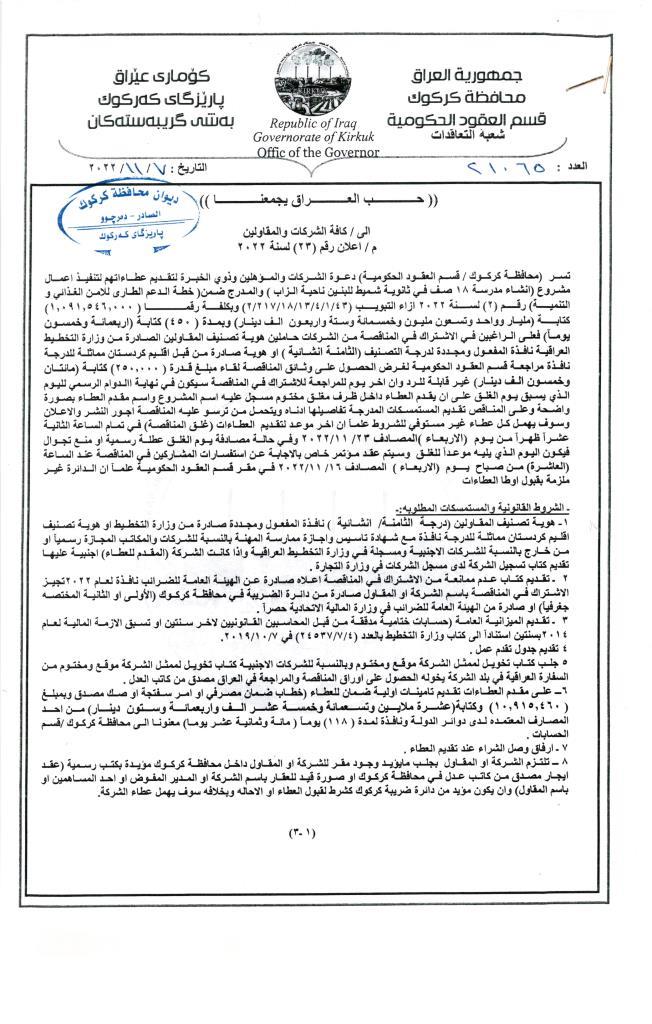 جمهورية العراق
محافظة كركوك
قسم العقود الحكومية
شعبة التعاقدات
كۆماری عێراق
پارێزگای كەركوك
بەشی گرێبەستەكان
KIRKUK
Republic of Iraq
Governorate of Kirkuk
Office of the Governor
العدد : ٢١٠٦٥
التاريخ : ٢٠٢٢/١١/٧
ديوان محافظة كركوك
الصادر - دەرچوو
پاریزگای كەركوك
(( حـــب العـــراق يجمعنـــا ))
الى / كافة الشركات والمقاولين
م / اعلان رقم (٢٣) لسنة ٢٠٢٢
تسر (محافظة كركوك / قسم العقود الحكومية) دعوة الشركات والمؤهلين وذوي الخبرة لتقديم عطاءاتهم لتنفيذ اعمال
مشروع (انشاء مدرسة ١٨ صف في ثانوية شميط للبنين ناحية الزاب ) والمدرج ضمن( خطة الدعم الطارئ للامن الغذائي و
التنمية) رقم (٢) لسنة ٢٠٢٢ ازاء التبويب (٢/٢١٧/١٨/١٣/٤/١/٤٣) وبكلفة رقمـــا (١,٠٩١,٥٤٦,٠٠٠)
كتابة (مليار وواحد وتسعون مليون وخمسمائة وستة واربعون الف دينار) وبمدة (٤٥٠) كتابة (اربعمائة وخمسون
يوماً) فعلى الراغبين في الاشتراك في المناقصة من الشركات حاملين هوية تصنيف المقاولين الصادرة من وزارة التخطيط
العراقية نافذة المفعول ومجددة لدرجة التصنيف (الثامنة انشائية ) او هوية صادرة من قبل اقليم كردستان مماثلة للدرجة
نافذة مراجعة قسم العقود الحكومية لغرض الحصول على وثائق المناقصة لقاء مبلغ قدرة (٢٥٠,٠٠٠) كتابة (مائتان
وخمسون الف دينار) غير قابلة للرد وان اخر يوم للمراجعة للاشتراك في المناقصة سيكون في نهاية الدوام الرسمي لليوم
الذي يسبق يوم الغلق على ان يقدم العطاء داخل ظرف مغلق مختوم مسجل عليه اسم المشروع واسم مقدم العطاء بصورة
واضحة وعلى المناقص تقديم المستمسكات المدرجة تفاصيلها ادناه ويتحمل من ترسو عليه المناقصة اجور النشر والاعلان
وسوف يهمل كل عطاء غير مستوفي للشروط علماً ان اخر موعد لتقديم العطاءات (غلق المناقصة) في تمام الساعة الثانية
عشراً ظهراً من يوم (الاربعاء )المصادف ٢٣/ ٢٠٢٢/١١ وفي حالة مصادفة يوم الغلق عطلة رسمية او منع تجوال
فيكون اليوم الذي يليه موعداً للغلق وسيتم عقد مؤتمر خاص بالاجابة عن استفسارات المشاركين في المناقصة عند الساعة
(العاشرة) من صباح يوم (الاربعاء ) المصادف ١٦/ ٢٠٢٢/١١ في مقر قسم العقود الحكومية علماً ان الدائرة غير
ملزمة بقبول اوطأ العطاءات
- الشروط القانونية والمستمسكات المطلوبه:-
١- هوية تصنيف المقاولين (درجة الثامنة/ انشائية ) نافذة المفعول ومجددة صادرة من وزارة التخطيط او هوية تصنيف
اقليم كردستان مماثلة للدرجة نافذة مع شهادة تاسيس واجازة ممارسة المهنة بالنسبة للشركات والمكاتب المجازة رسمياً او
من خارج بالنسبة للشركات الاجنبية ومسجلة في وزارة التخطيط العراقية واذا كانت الشركة (المقدم للعطاء) اجنبية عليها
تقديم كتاب تسجيل الشركة لدى مسجل الشركات في وزارة التجارة .
٢ - تقديم كتاب عدم ممانعة من الاشتراك في المناقصة اعلاه صادرة عن الهيئة العامة للضرائب نافذة لعام ٢٠٢٢تجيز
الاشتراك في المناقصة باسم الشركة او المقاول صادرة من دائرة الضريبة في محافظة كركوك (الأولى او الثانية المختصه
جغرفياً) او صادرة من الهيئة العامة للضرائب في وزارة المالية الاتحادية حصراً .
٣ - تقديم الميزانية العامة (حسابات ختامية مدققة من قبل المحاسبين القانونيين لاخر سنتين او تسبق الازمة المالية لعام
٢٠١٤ بسنتين استناداً الى كتاب وزارة التخطيط بالعدد (٢٤٥٣٧/٧/٤) في ٢٠١٩/١٠/٧.
٤ تقديم جدول تقدم عمل .
٥ جلب كتاب تخويل لممثل الشركة موقع ومختوم وبالنسبة للشركات الاجنبية كتاب تخويل لممثل الشركة موقع ومختوم من
السفارة العراقية في بلد الشركة يخوله الحصول على اوراق المناقصة والمراجعة في العراق مصدق من كاتب العدل .
٦- على مقدم العطاءات تقديم تامينات اولية ضمان للعطاء (خطاب ضمان مصرفي او امر سفتجة او صك مصدق وبمبلغ
(١٠,٩١٥,٤٦٠ ) وكتابة(عشرة ملايين وتسعمائة وخمسة عشر الف واربعمائة وستون دينار) من احد
المصارف المعتمده لدى دوائر الدولة ونافذة لمدة (١١٨) يوماً ( مائة وثمانية عشر يوما) معنونا الى محافظة كركوك /قسم
الحسابات .
٧ - ارفاق وصل الشراء عند تقديم العطاء .
٨ – تلتزم الشركة او المقاول بجلب مايؤيد وجود مقر للشركة او المقاول داخل محافظة كركوك مؤيدة بكتب رسمية (عقد
ايجار مصدق من كاتب عدل في محافظة كركوك او صورة قيد للعقار باسم الشركة او المدير المفوض او احد المساهمين او
باسم المقاول) وان يكون مؤيد من دائرة ضريبة كركوك كشرط لقبول العطاء او الاحاله وبخلافه سوف يهمل عطاء الشركة.
(١-٣)